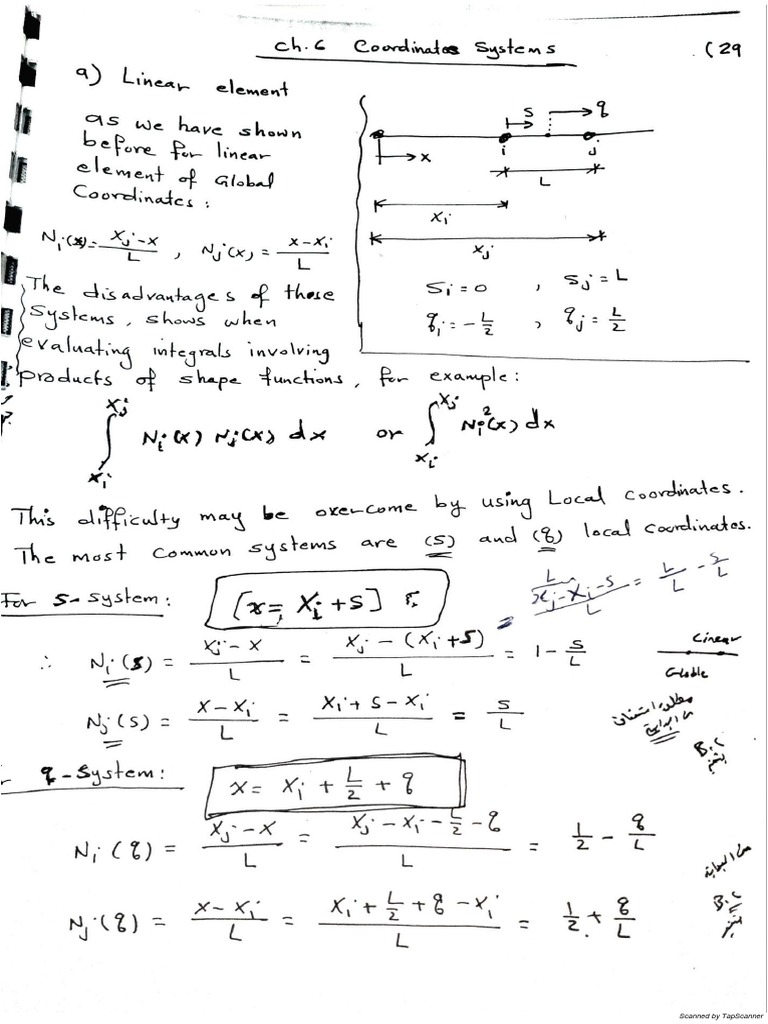 Ch.6 Coordinates Systems
(29
a) Linear element
as we have shown
before for linear
element of Global
Coordinates:
Ni(x) = (Xj - x)/L , Nj(x) = (x - Xi)/L
s
q
x
i
j
L
Xi
Xj
Si = 0 , Sj = L
qi = -L/2 , qj = L/2
The disadvantages of those
Systems, shows when
evaluating integrals involving
products of shape functions, for example:
∫_{Xi}^{Xj} Ni(x) Nj(x) dx or ∫_{Xi}^{Xj} Ni²(x) dx
This difficulty may be overcome by using Local coordinates.
The most common systems are (S) and (q) local coordinates.
For S-System: [x = Xi + S]
(Xj - Xi - S)/L = L/L - S/L
∴ Ni(s) = (Xj - x)/L = (Xj - (Xi + S))/L = 1 - S/L
Linear
Nj(s) = (x - Xi)/L = (Xi + S - Xi)/L = S/L
B.C
q-System: x = Xi + L/2 + q
Ni(q) = (Xj - x)/L = (Xj - Xi - L/2 - q)/L = 1/2 - q/L
B.C
Nj(q) = (x - Xi)/L = (Xi + L/2 + q - Xi)/L = 1/2 + q/L
Scanned by TapScanner